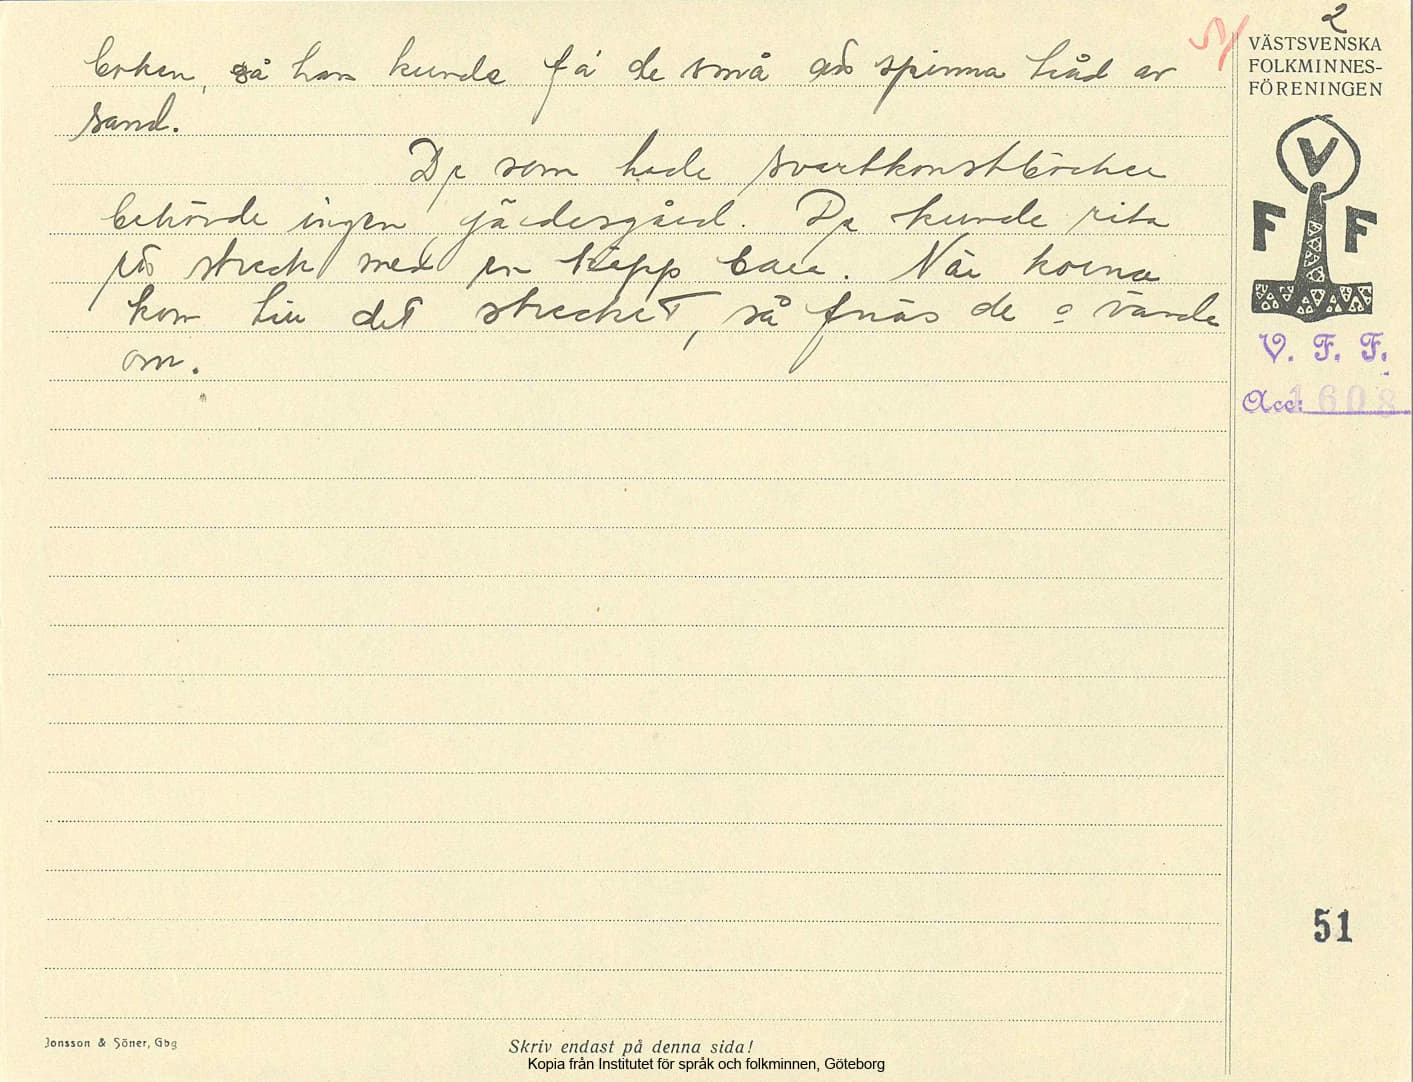 2
VÄSTSVENSKA
FOLKMINNES-
FÖRENINGEN
boken, så han kunde få de små att spinna tråd av
sand.
De som hade svartkonstböcker
behövde ingen gärdesgård. De kunde rita
ett streck med en käpp bara. När korna
kom till det strecket, så fnös de o vände
om.
V
F F
V. F. F.
Acc: 1608
51
Jonsson & Söner, Gbg
Skriv endast på denna sida!
Kopia från Institutet för språk och folkminnen, Göteborg